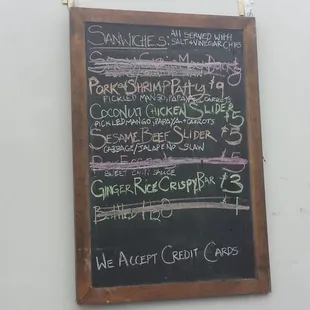 SANWICHES: ALL SERVED WITH
SALT & VINEGAR CHIPS
PORK & SHRIMP PATTY $9
PICKLED MANGO, PAPAYA & CARROTS
COCONUT CHICKEN SLIDER $5
PICKLED MANGO, PAPAYA & CARROTS
SESAME BEEF SLIDER $5
CABBAGE/JALAPENO SLAW
SWEET CHILI SAUCE
GINGER RICE CRISPY BAR $3
BOTTLED H2O $1
WE ACCEPT CREDIT CARDS